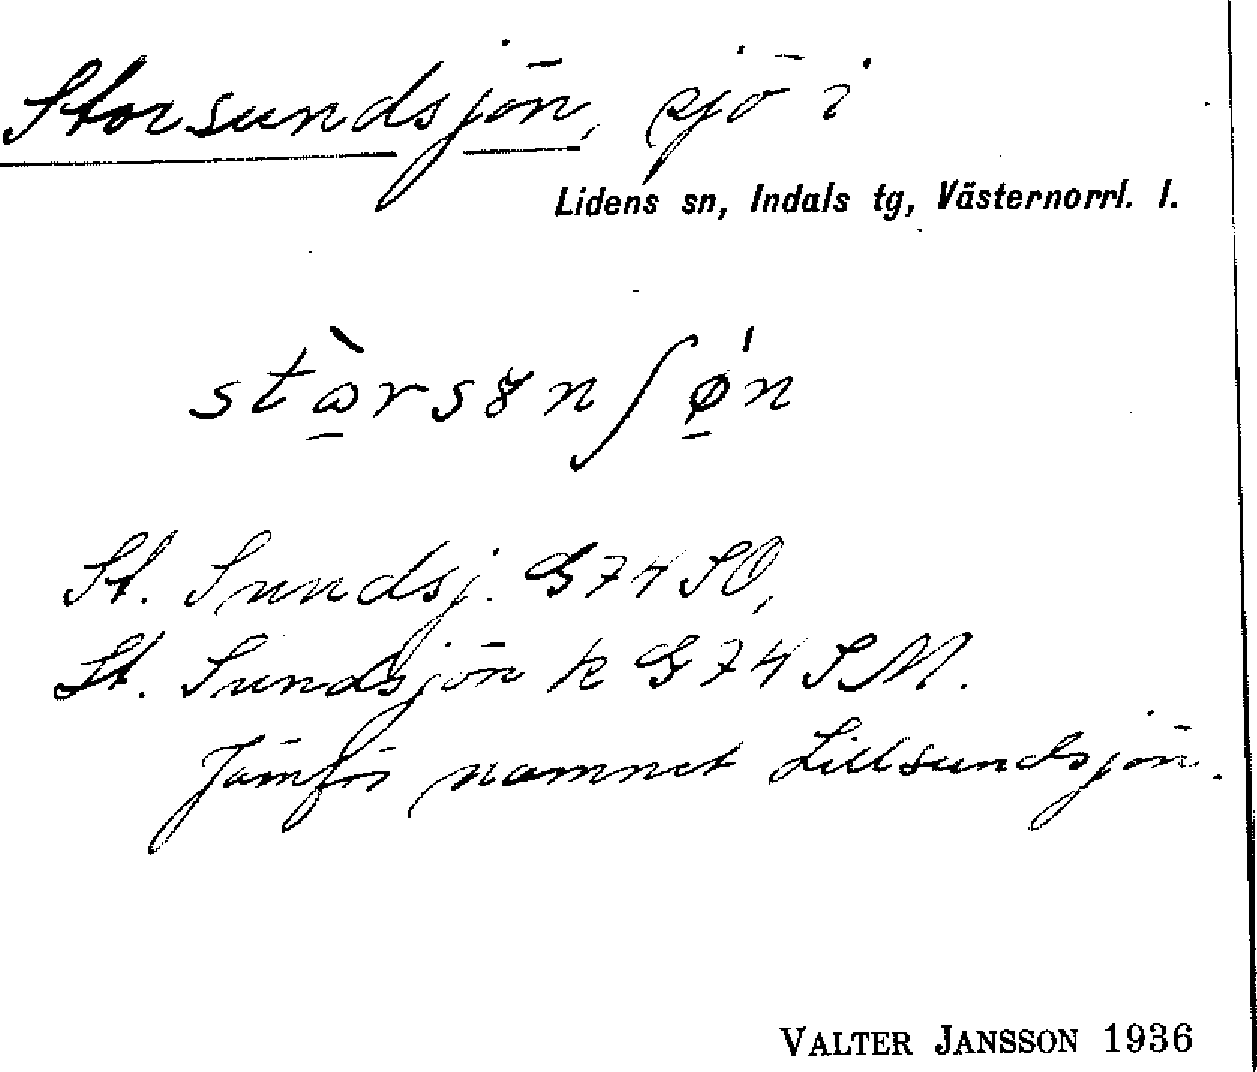 Storsundsjön, sjö i
Lidens sn, Indals tg, Västernorrl. l.
St. Sundsj. G74 SO,
St. Sundsjön k G74 SM.
Jämför namnet Lillsundsjön.
VALTER JANSSON 1936